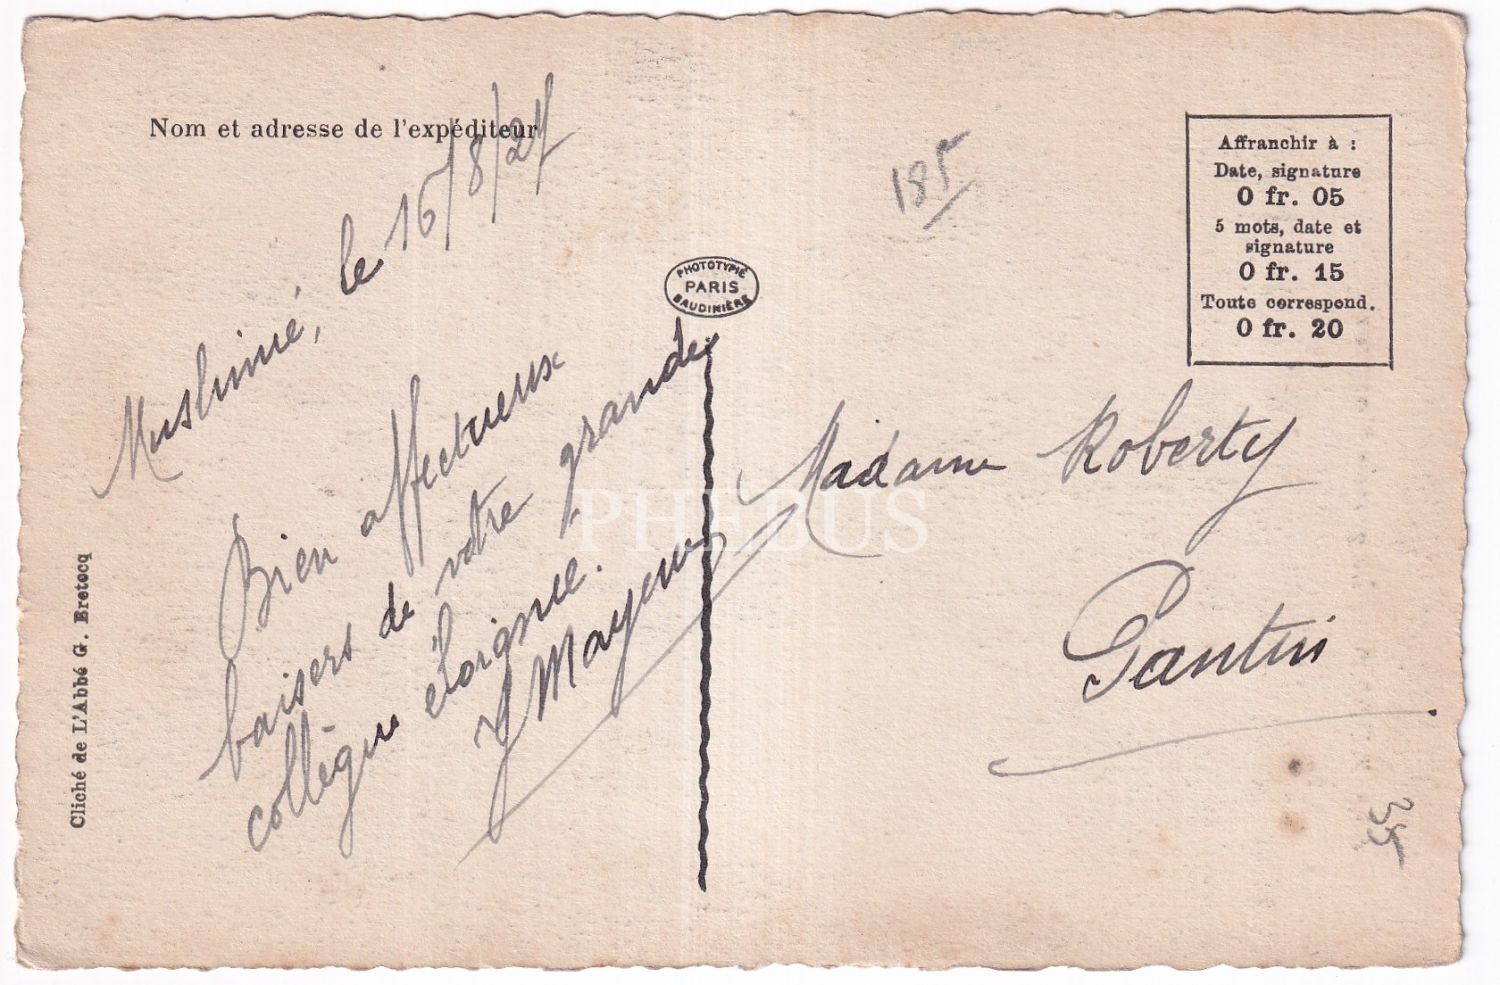 Nom et adresse de l'expéditeur
le 16/8/27
Bien affectueux
baisers de votre grande
collègue éloignée.
185
PHOTOTYPIE
PARIS
BAUDINIÈRE
Affranchir à :
Date, signature
0 fr. 05
5 mots, date et
signature
0 fr. 15
Toute correspond.
0 fr. 20
Madame Roberty
Pantin
35
Cliché de L'Abbé G. Bretocq
PHEBUS